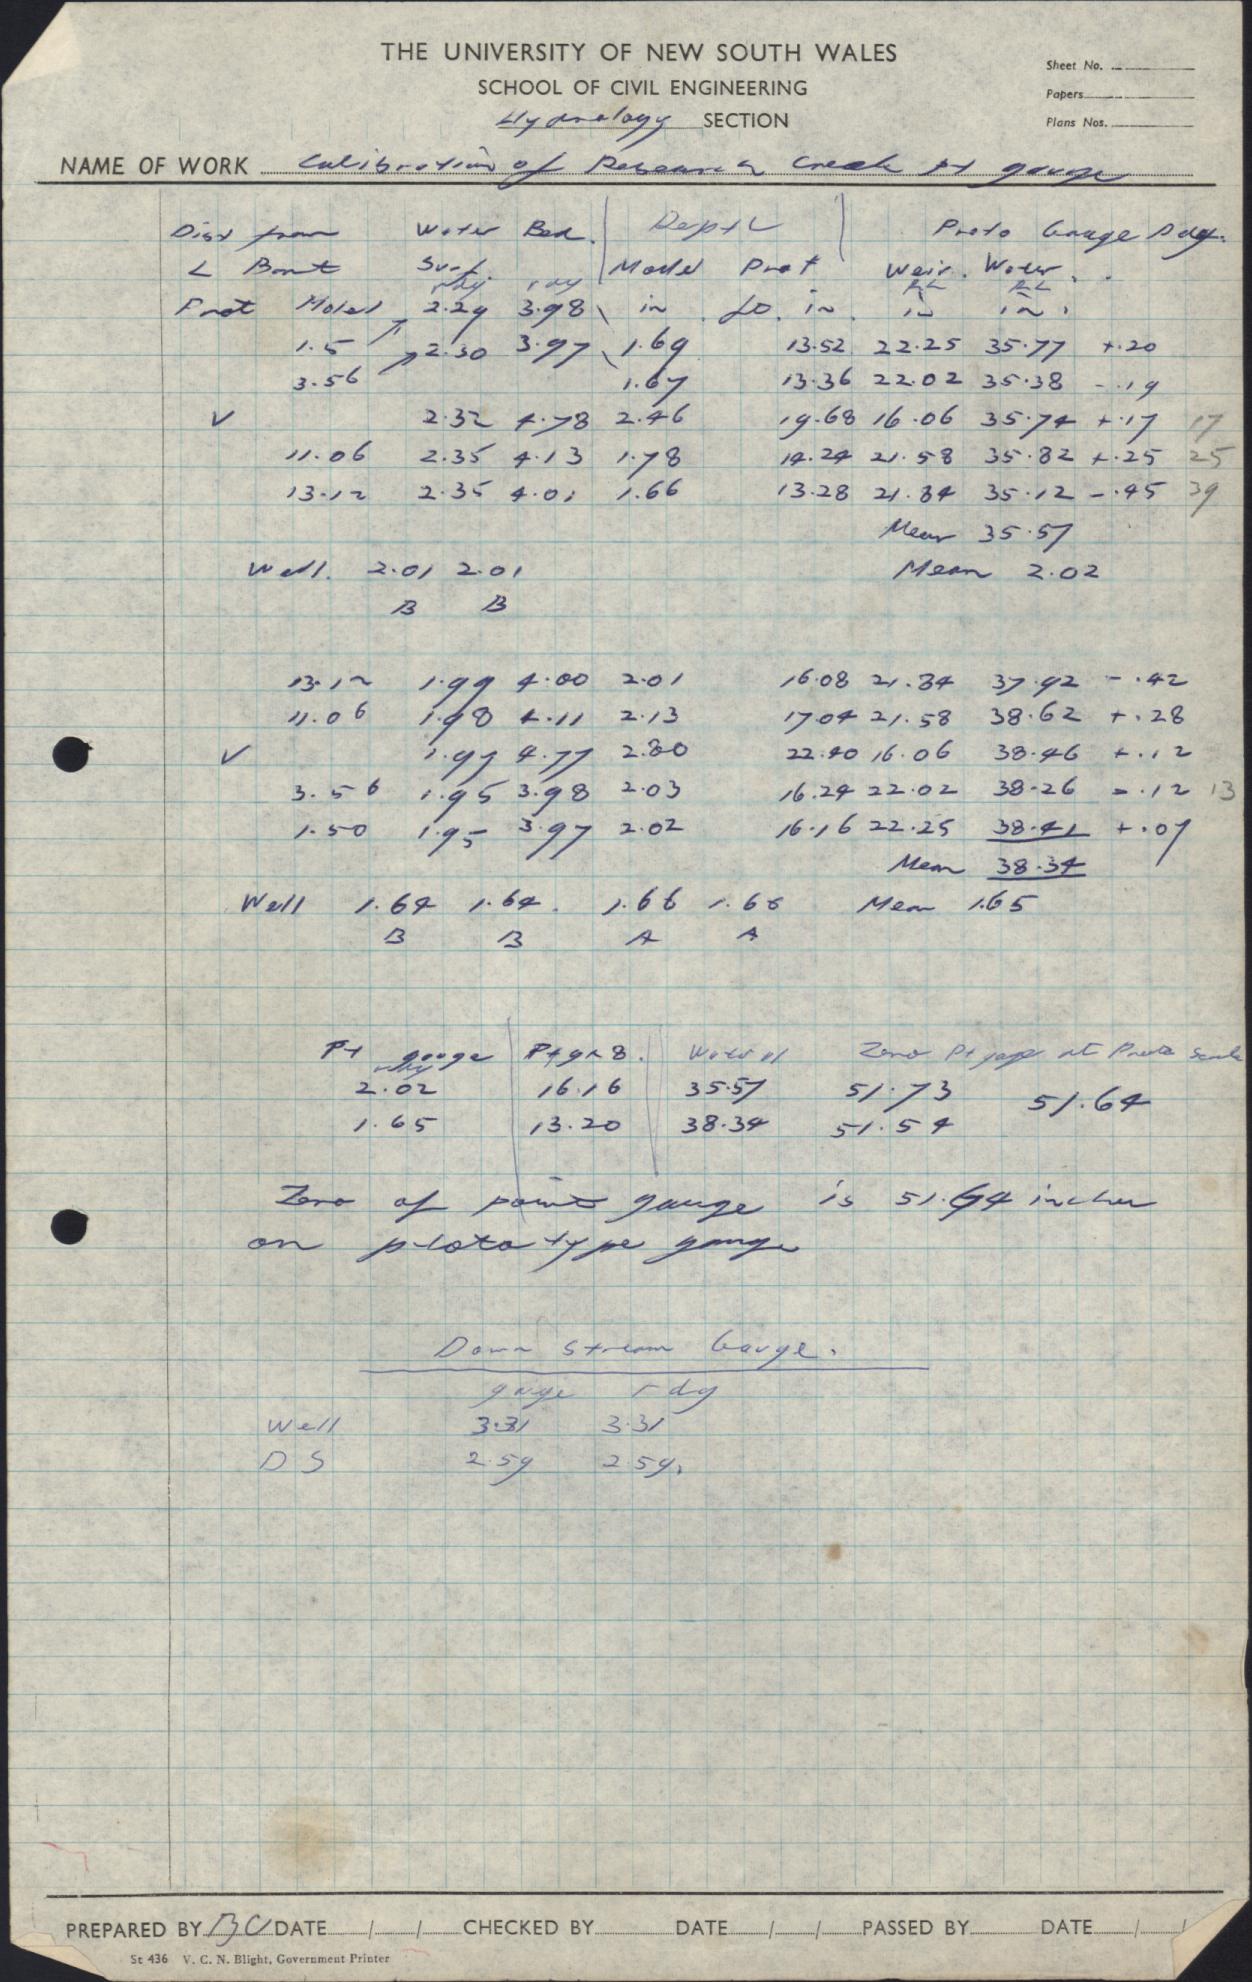 THE UNIVERSITY OF NEW SOUTH WALES
SCHOOL OF CIVIL ENGINEERING
Sheet No.
Papers
Plans Nos.
Hydrology SECTION
NAME OF WORK Calibration of Research Creek Pt gauge
Dist from Water Bed. Depth Proto Gauge Rdg.
L Bank Surf. Model Prot Weir. Water.
rdg rdg RL RL
Prot Model 2.29 3.98 in in. in in.
1.5 2.30 3.97 1.69 13.52 22.25 35.77 +.20
3.56 1.67 13.36 22.02 35.38 -.19
V 2.32 4.78 2.46 19.68 16.06 35.74 +.17 17
11.06 2.35 4.13 1.78 14.24 21.58 35.82 +.25 25
13.12 2.35 4.01 1.66 13.28 21.84 35.12 -.45 39
Mean 35.57
Well. 2.01 2.01 Mean 2.02
B B
13.12 1.99 4.00 2.01 16.08 21.84 37.92 -.42
11.06 1.98 4.11 2.13 17.04 21.58 38.62 +.28
V 1.97 4.77 2.80 22.40 16.06 38.46 +.12
3.56 1.95 3.98 2.03 16.24 22.02 38.26 -.12 13
1.50 1.95 3.97 2.02 16.16 22.25 38.41 +.07
Mean 38.34
Well 1.64 1.64. 1.66 1.66 Mean 1.65
B B A A
Pt gauge Pt ga x 8. Water rl Zero Pt gauge at Proto Scale
rdg
2.02 16.16 35.57 51.73 51.64
1.65 13.20 38.34 51.54
Zero of point gauge is 51.64 inches
on prototype gauge
Down Stream Gauge.
gauge rdg
Well 3.31 3.31
DS 2.59 2.59.
PREPARED BY BC DATE / / CHECKED BY DATE / / PASSED BY DATE / /
St 436 V. C. N. Blight, Government Printer